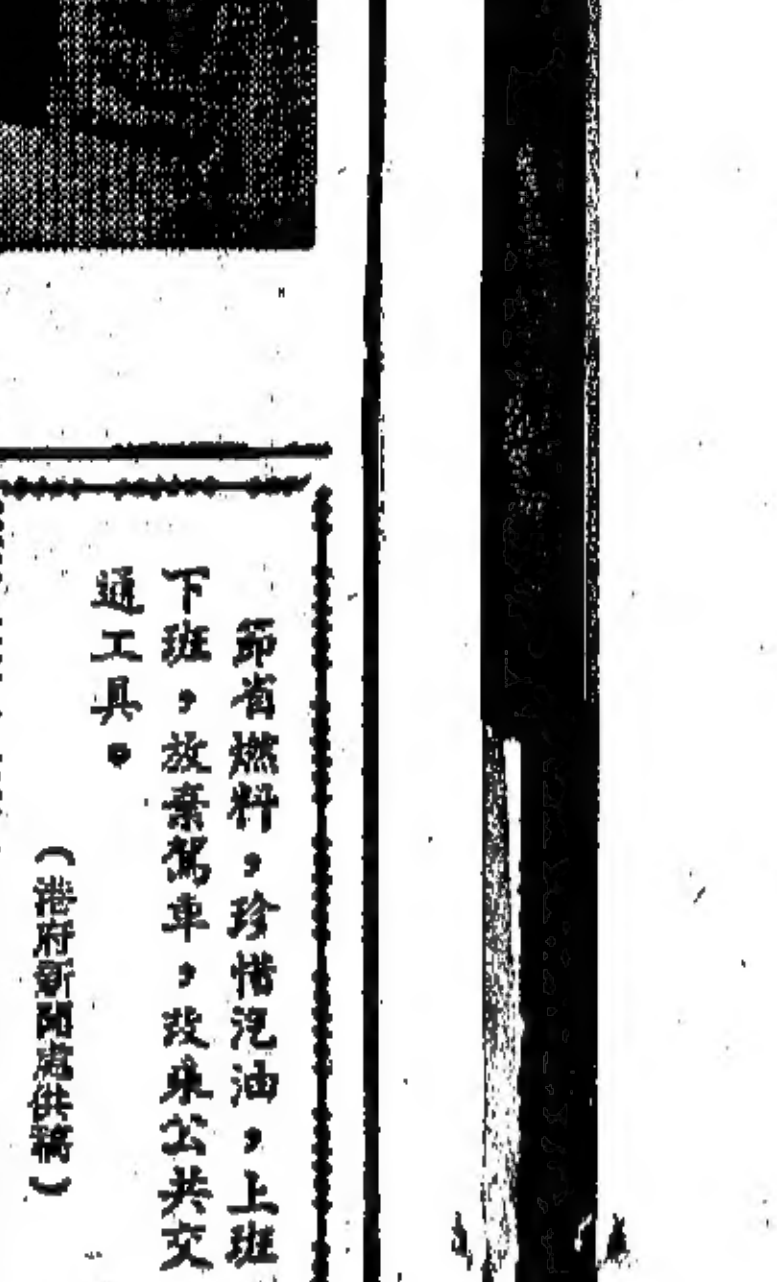 節省燃料，珍惜汽油，上班
下班，放棄駕車，改乘公共交
通工具。
（港府新聞處供稿）